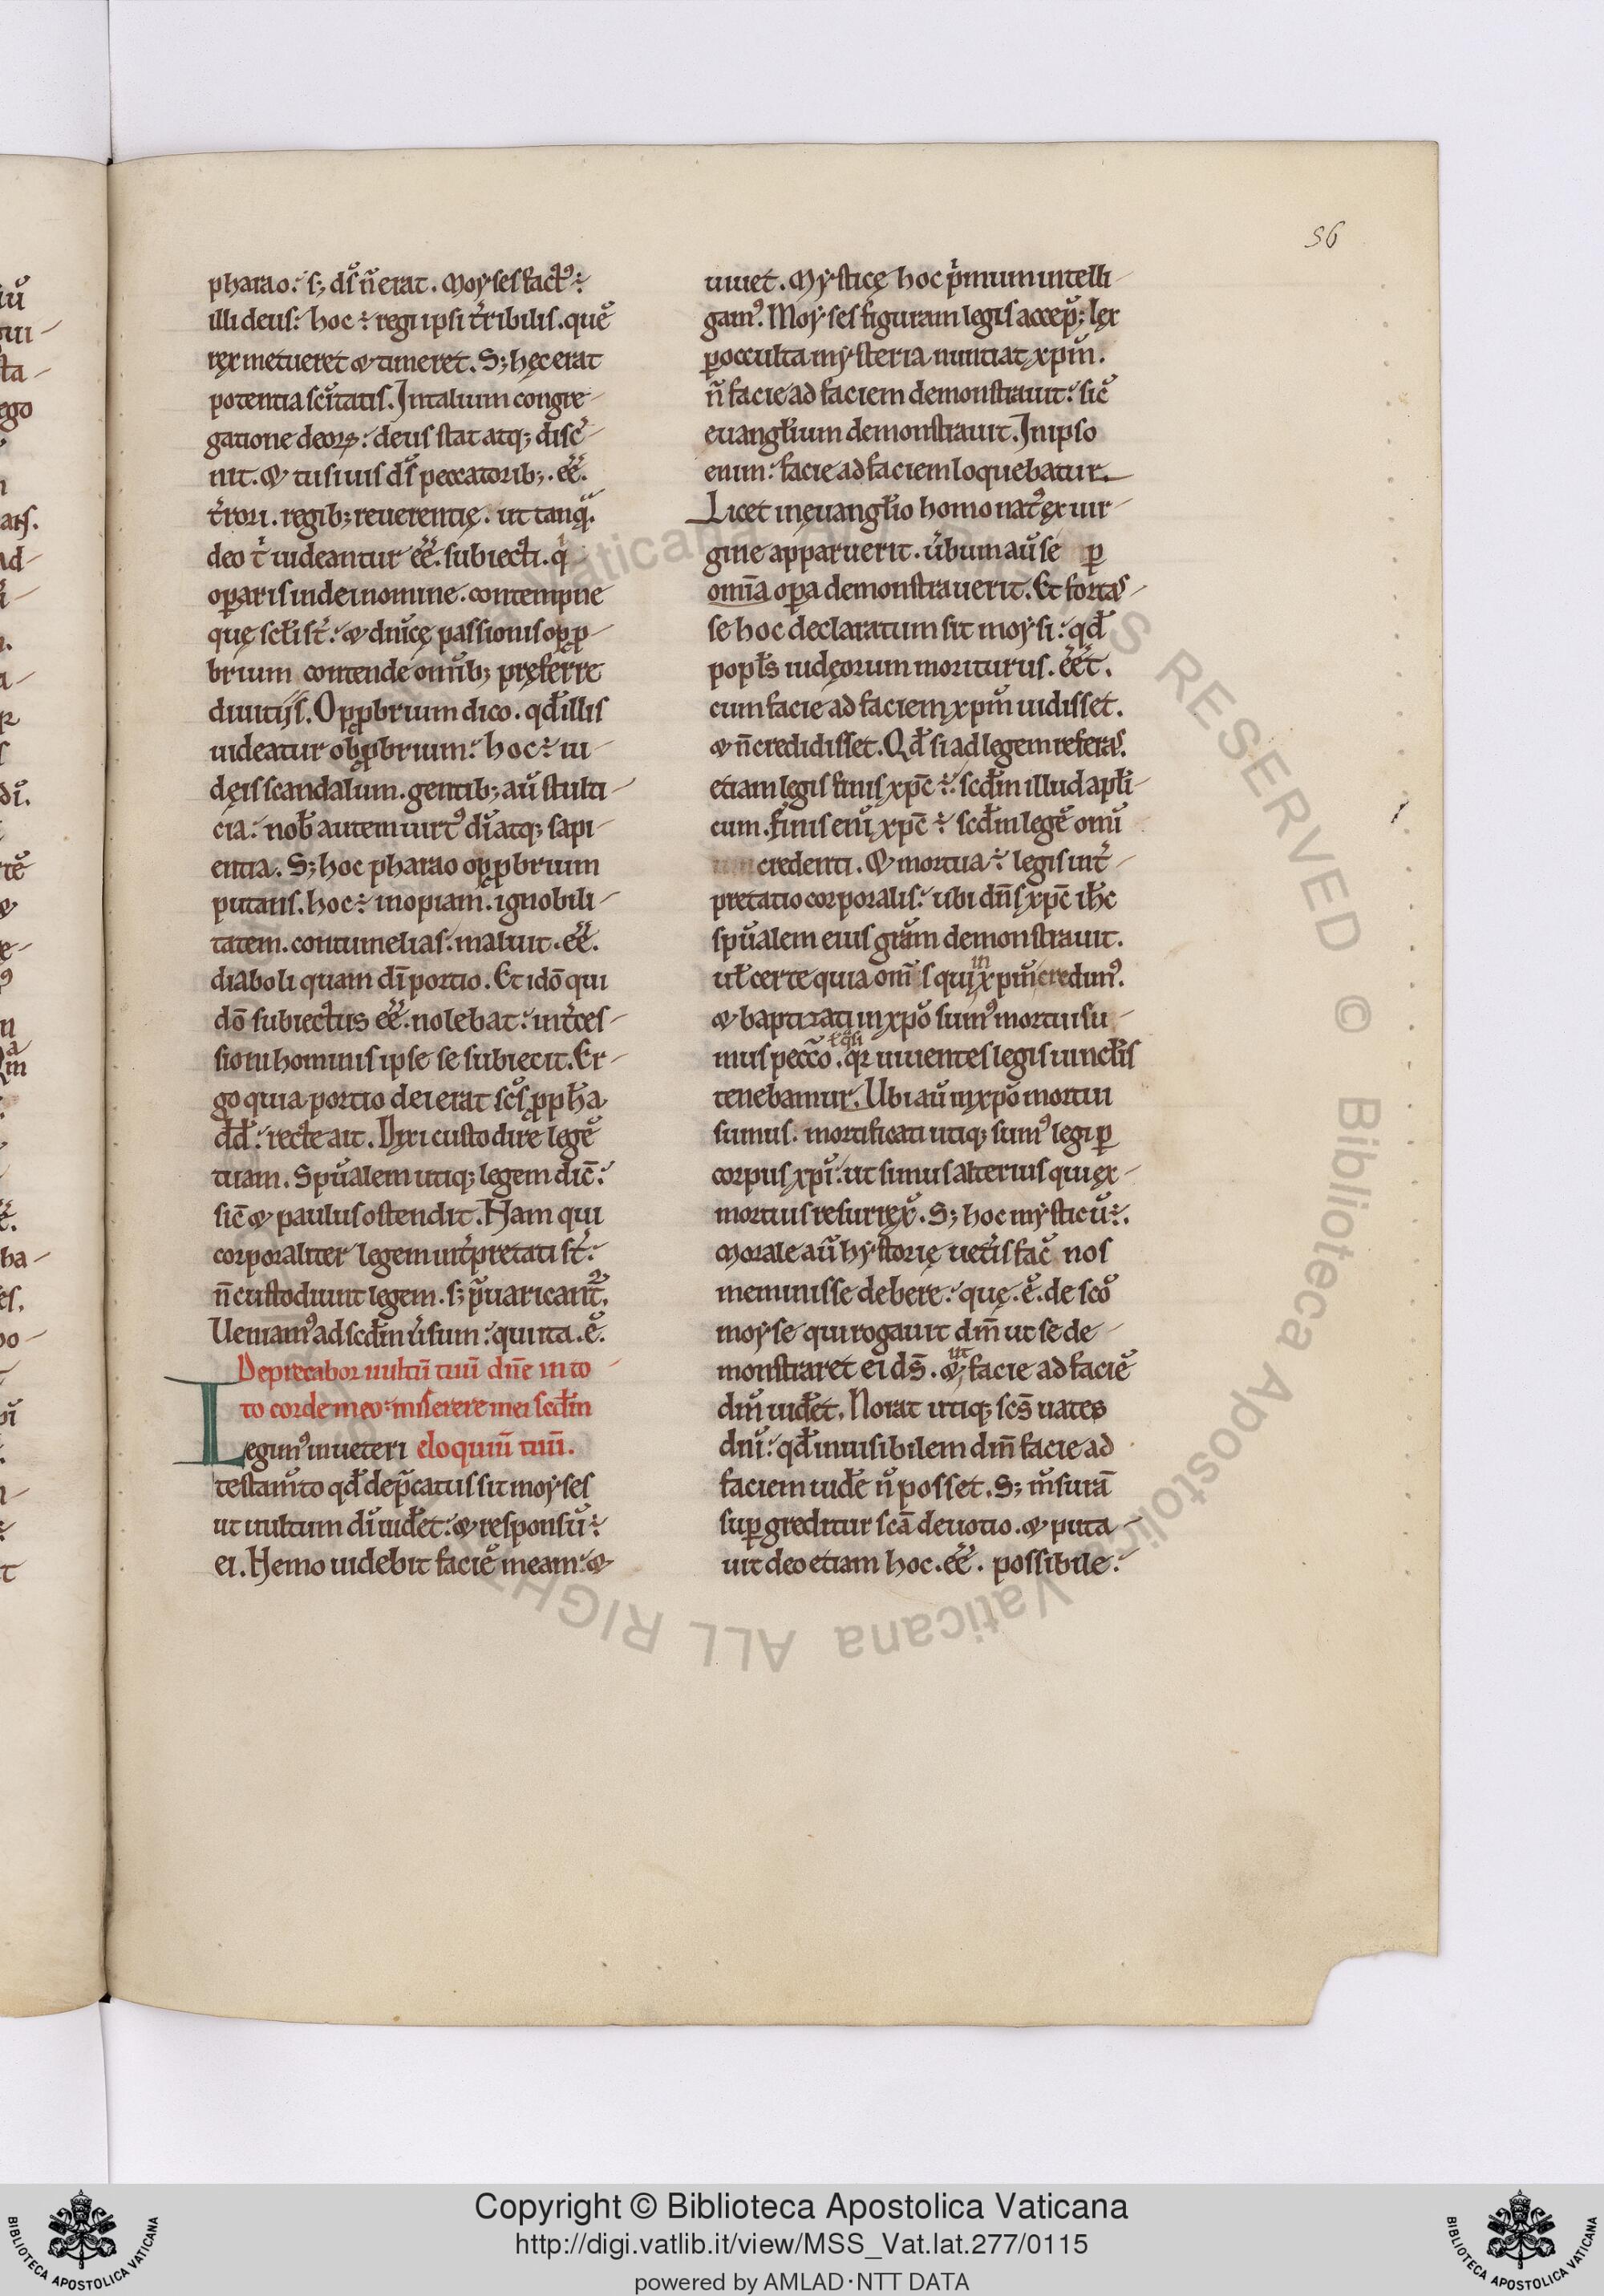 56
pharao: s; ds̄ n̄ erat. Moyses fact᷒ ÷
illi deus: hoc ÷ regi ipsi t̄ribilis. quē
rex metueret & timeret. S; hęc erat
potentia sc̄itatis. In talium congre-
gatione deoꝝ: deus stat atq; disc̄-
nit. & tu si uis ds̄ peccatorib;. eē.
t̄rori. regib; reuerentię. ut tanq̄.
deo t̄ uideantur eē. subiecti. q̄
oꝑaris in dei nomine. contempne
quę scl̄i st̄: & dn̄icę passionis opꝓ-
brium contende om̄ib; pręferre
diuitijs. Opꝓbrium dico. qd̄ illis
uideatur obꝓbrium: hoc ÷ iu-
dęis scandalum. gentib; aū stulti-
cia: nob̄ autem uirt᷒ dī atq; sapi-
entia. S; hoc pharao opꝓbrium
putans. hoc ÷ inopiam. ignobili-
tatem. contumelias: maluit. eē.
diaboli quam dī portio. Et idō qui
dō subiectus eē. nolebat: int̄ces-
sioni hominis ipse se subiecit. Er-
go quia portio dei erat scs̄ ꝓpħa
dd̄: recte ait. Dixi custodire legē
tuam. Spūalem utiq; legem dic̄:
sic̄ & paulus ostendit. Nam qui
corporaliter legem int̄pretati st̄:
n̄ custodiunt legem. s; p̄uaricant᷒.
Ueniam᷒ ad scd̄m u̅sum: quinta. ē.
Deprecabor uultū tuū dn̄e in to-
to corde meo: miserere mei scd̄m
Legim᷒ in ueteri eloquiū tuū.
testam̄to qd̄ dep̄catus sit moyses
ut uultum dī uid̄et: & responsū ÷
ei. Nemo uidebit faciē meam: &
uiuet. Mysticę hoc p̄mum intelli-
gam᷒. Moyses figuram legis accep̄; lex
ꝑ occulta mysteria nuntiat xpm̄.
n̄ facie ad faciem demonstrauit: sic̄
euangl̄ium demonstrauit. In ipso
enim: facie ad faciem loquebatur.
Licet in euangl̄io homo nat᷒ ex uir-
gine apparuerit. u̅bum aū se ꝑ
om̄ia oꝑa demonstrauerit. Et fortas-
se hoc declaratum sit moysi: qd̄
popl̄s iudęorum moriturus. eēt.
cum facie ad faciem xpm̄ uidisset.
& n̄ credidisset. Qd̄ si ad legem referas.
etiam legis finis xpc̄ ÷: scd̄m illud apl̄i-
cum. finis enī xpc̄ ÷ scd̄m legē omī
credenti. & mortua ÷ legis int̄-
pretatio corporalis: ubi dn̄s xpc̄ ih̄c
spūalem eius grām demonstrauit.
ul̄ certe quia om̄s qui in xpm̄ credim᷒.
& baptizati in xpō sum᷒ mortui su-
mus pecc̄o. qꝛ uiuentes legis uincl̄is
tenebamur. Ubi aū in xpō mortui
sumus. mortificati utiq; sum᷒ legi ꝑ
corpus xpī: ut simus alterius qui ex
mortuis resurrex̄. S; hoc mysticū ÷.
Morale aū hystorię uet̄is fac̄ nos
meminisse debere: quę. ē. de scō
moyse qui rogauit dm̄ ut se de-
monstraret ei ds̄. ut &; facie ad faciē
dm̄ uid̄et. Norat utiq; scs̄ uates
dn̄i: qd̄ inuisibilem dm̄ facie ad
faciem uid̄e n̄ posset. S; m̄surā
suꝑgreditur scā deuotio. & puta-
uit deo etiam hoc. eē. possibile:
Copyright © Biblioteca Apostolica Vaticana
http://digi.vatlib.it/view/MSS_Vat.lat.277/0115
powered by AMLAD·NTT DATA